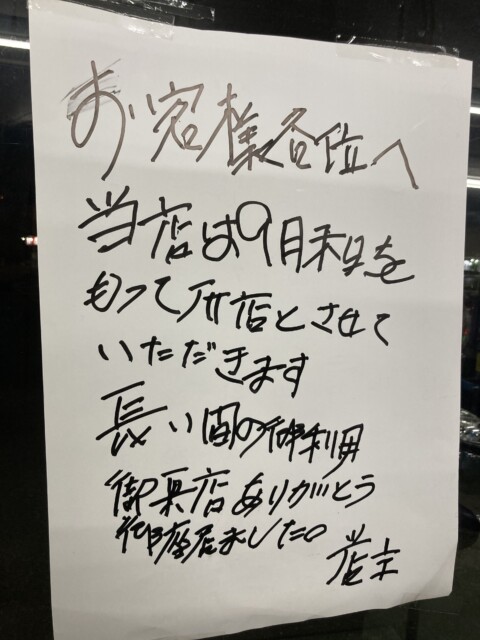 お客様各位へ
当店は9月末日を
もって閉店とさせて
いただきます
長い間の御利用
御来店ありがとう
御座居ました。
店主